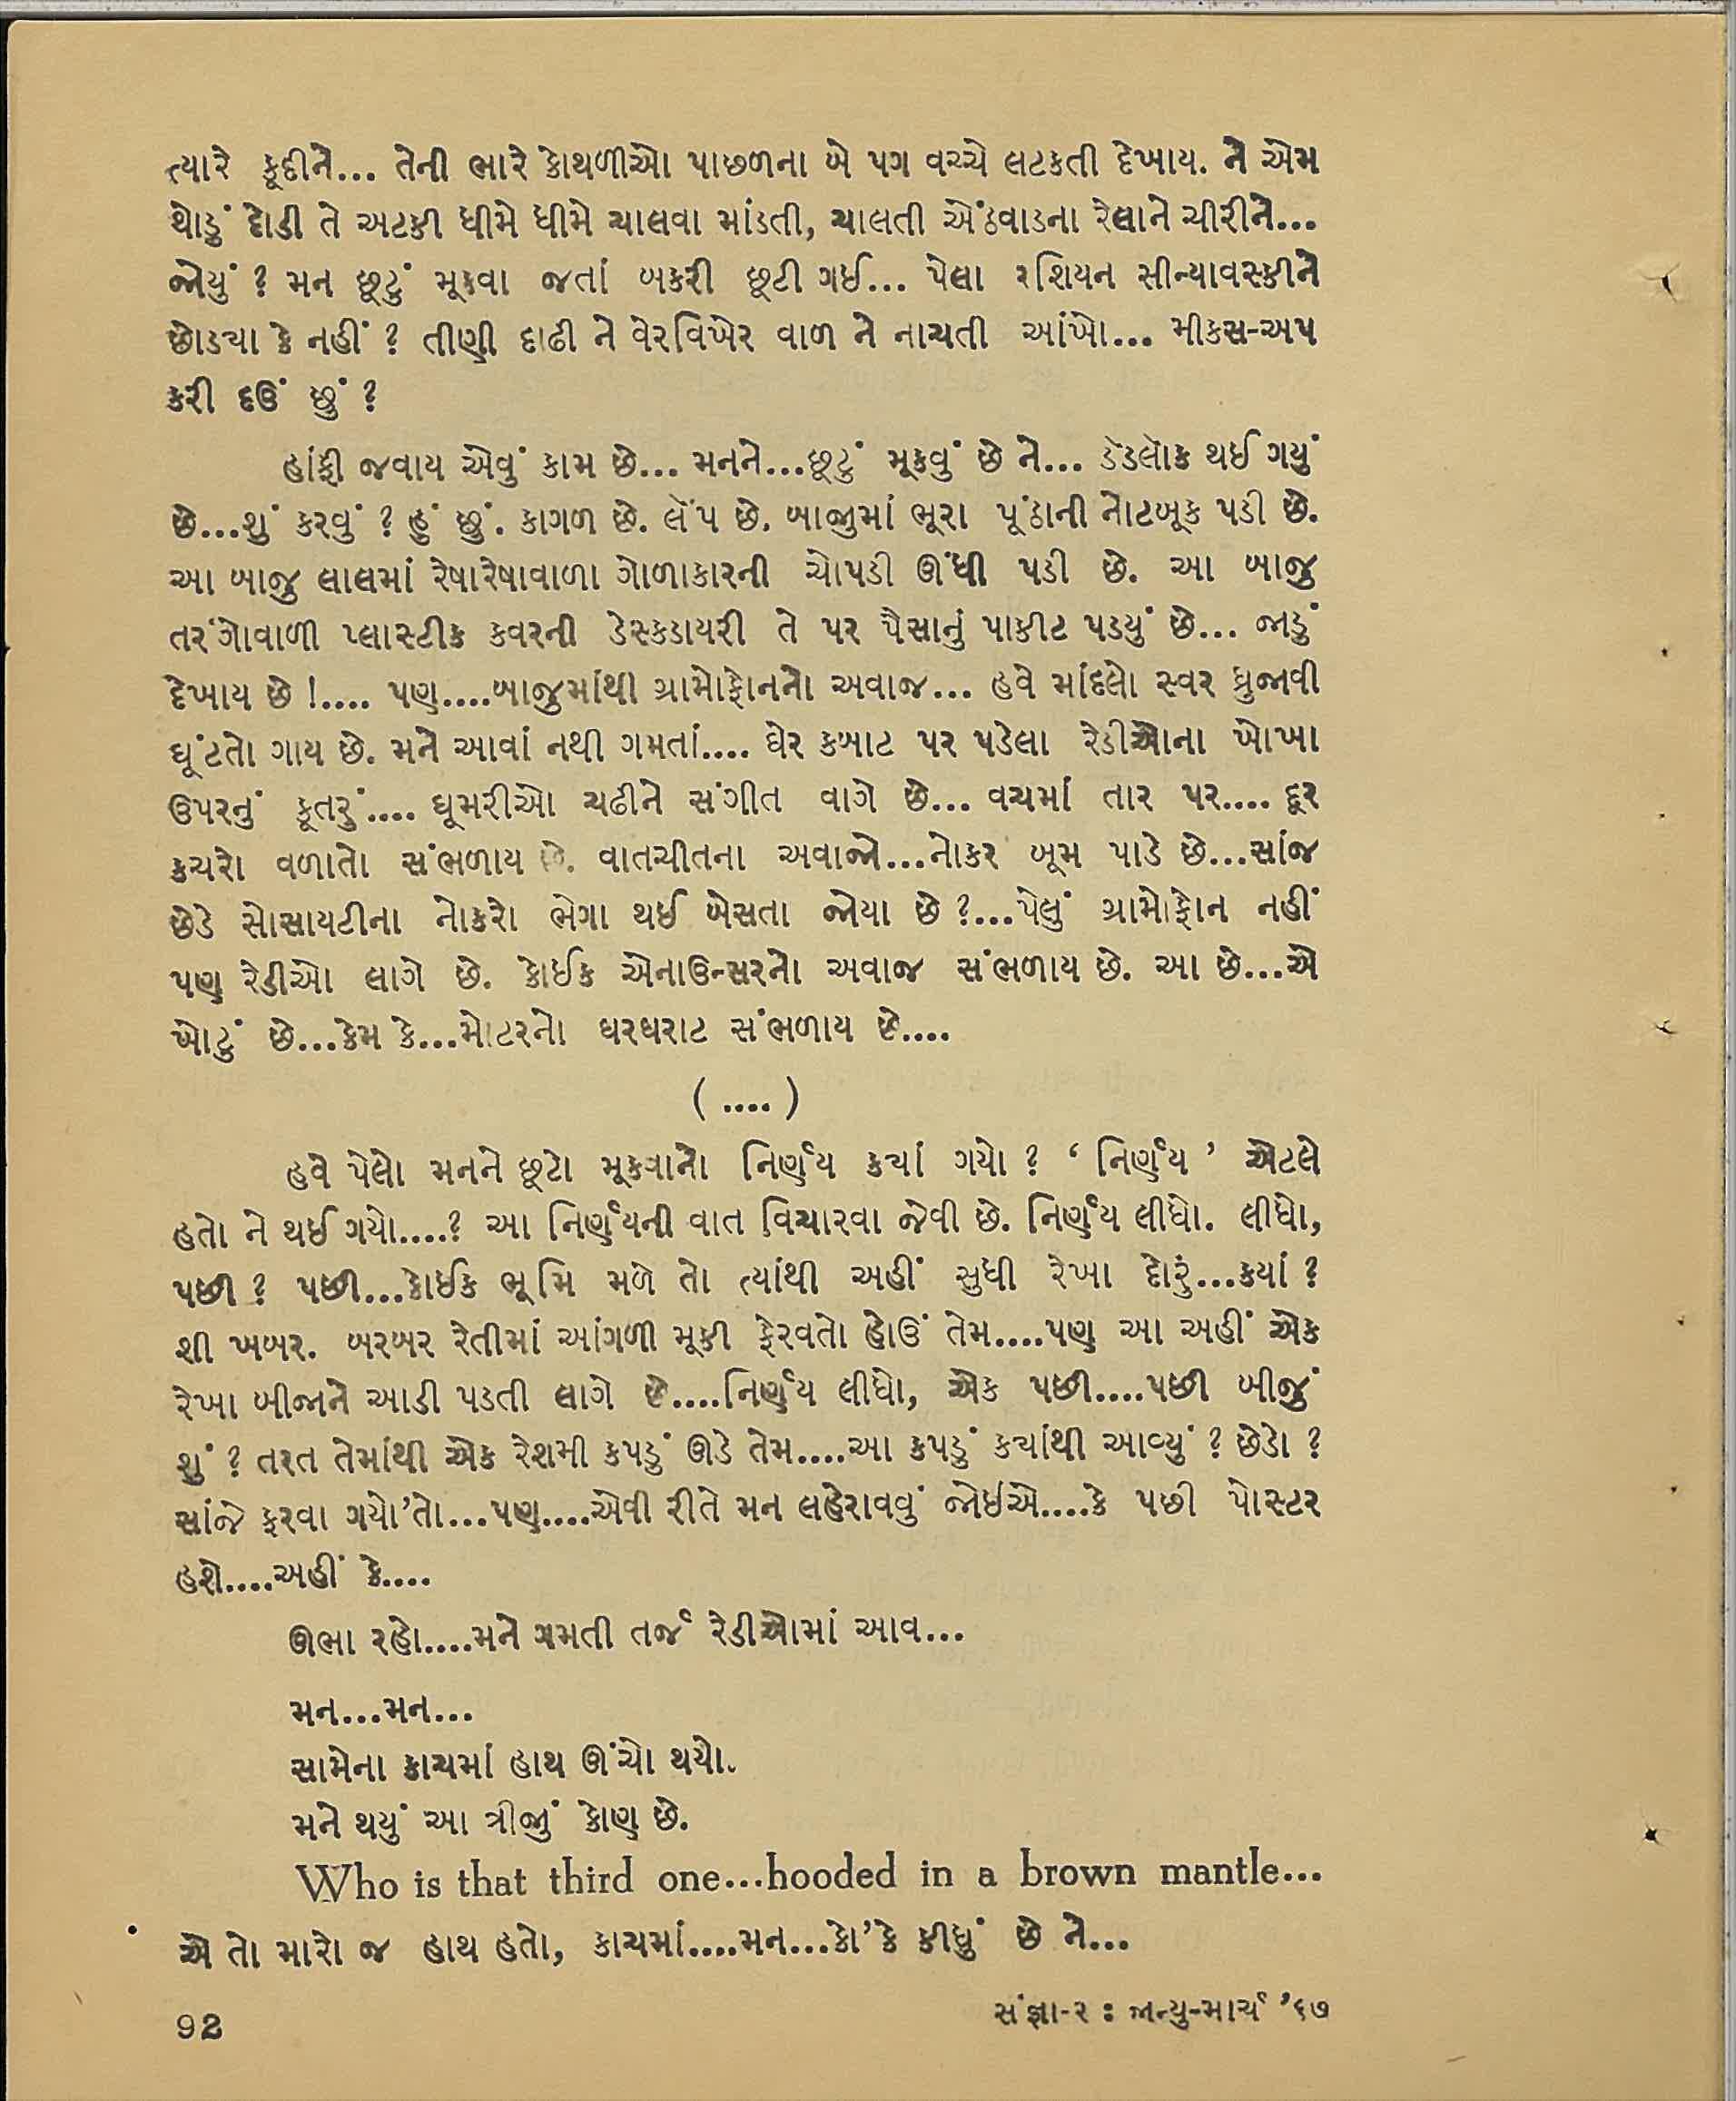 ત્યારે કૂદીને... તેની ભારે કોથળીઓ પાછળના બે પગ વચ્ચે લટકતી દેખાય. ને એમ
થોડું દોડી તે અટકી ધીમે ધીમે ચાલવા માંડતી, ચાલતી એંઠવાડના રેલાને ચીરીને...
જોયું ? મન છૂટું મૂકવા જતાં બકરી છૂટી ગઈ... પેલા રશિયન સીન્યાવસ્કીને
છોડ્યા કે નહીં ? તીણી દાઢી ને વેરવિખેર વાળ ને નાચતી આંખો... મીકસ-અપ
કરી દઉં છું ?
હાંફી જવાય એવું કામ છે... મનને...છૂટું મૂકવું છે ને... ડેડલોક થઈ ગયું
છે...શું કરવું ? હું છું. કાગળ છે. લેંપ છે. બાજુમાં ભૂરા પૂંઠાની નોટબૂક પડી છે.
આ બાજુ લાલમાં રેષારેષાવાળા ગોળાકારની ચોપડી ઊંધી પડી છે. આ બાજુ
તરંગોવાળી પ્લાસ્ટીક કવરની ડેસ્કડાયરી તે પર પૈસાનું પાકીટ પડયું છે... જાડું
દેખાય છે !.... પણ....બાજુમાંથી ગ્રામોફોનનો અવાજ... હવે માંદલો સ્વર ધ્રુજાવી
ઘૂંટતો ગાય છે. મને આવાં નથી ગમતાં.... ઘેર કબાટ પર પડેલા રેડીઓના ખોખા
ઉપરનું કૂતરું.... ઘૂમરીઓ ચઢીને સંગીત વાગે છે... વચમાં તાર પર.... દૂર
કચરો વળાતો સંભળાય છે. વાતચીતના અવાજો...નોકર બૂમ પાડે છે...સાંજ
છેડે સોસાયટીના નોકરો ભેગા થઈ બેસતા જોયા છે ?...પેલું ગ્રામોફોન નહીં
પણ રેડીઓ લાગે છે. કોઈક એનાઉન્સરનો અવાજ સંભળાય છે. આ છે...એ
ખોટું છે...કેમ કે...મોટરનો ઘરઘરાટ સંભળાય છે....
( .... )
હવે પેલો મનને છૂટો મૂકવાનો નિર્ણય કયાં ગયો ? ‘ નિર્ણય ’ એટલે
હતો ને થઈ ગયો....? આ નિર્ણયની વાત વિચારવા જેવી છે. નિર્ણય લીધો. લીધો,
પછી ? પછી...કોઈક ભૂમિ મળે તો ત્યાંથી અહીં સુધી રેખા દોરું...કયાં ?
શી ખબર. બરબર રેતીમાં આંગળી મૂકી ફેરવતો હોઉં તેમ....પણ આ અહીં એક
રેખા બીજાને આડી પડતી લાગે છે....નિર્ણય લીધો, એક પછી....પછી બીજું
શું ? તરત તેમાંથી એક રેશમી કપડું ઊડે તેમ....આ કપડું કયાંથી આવ્યું ? છેડો ?
સાંજે ફરવા ગયો’તો...પણ....એવી રીતે મન લહેરાવવું જોઈએ....કે પછી પોસ્ટર
હશે....અહીં કે....
ઊભા રહો....મને ગમતી તર્જ રેડીઓમાં આવ...
મન...મન...
સામેના કાચમાં હાથ ઊંચો થયો.
મને થયું આ ત્રીજું કોણ છે.
Who is that third one...hooded in a brown mantle...
એ તો મારો જ હાથ હતો, કાચમાં....મન...કો’કે કીધું છે ને...
૧૨
સંજ્ઞા-૨ : જાન્યુ-માર્ચ ’૬૭